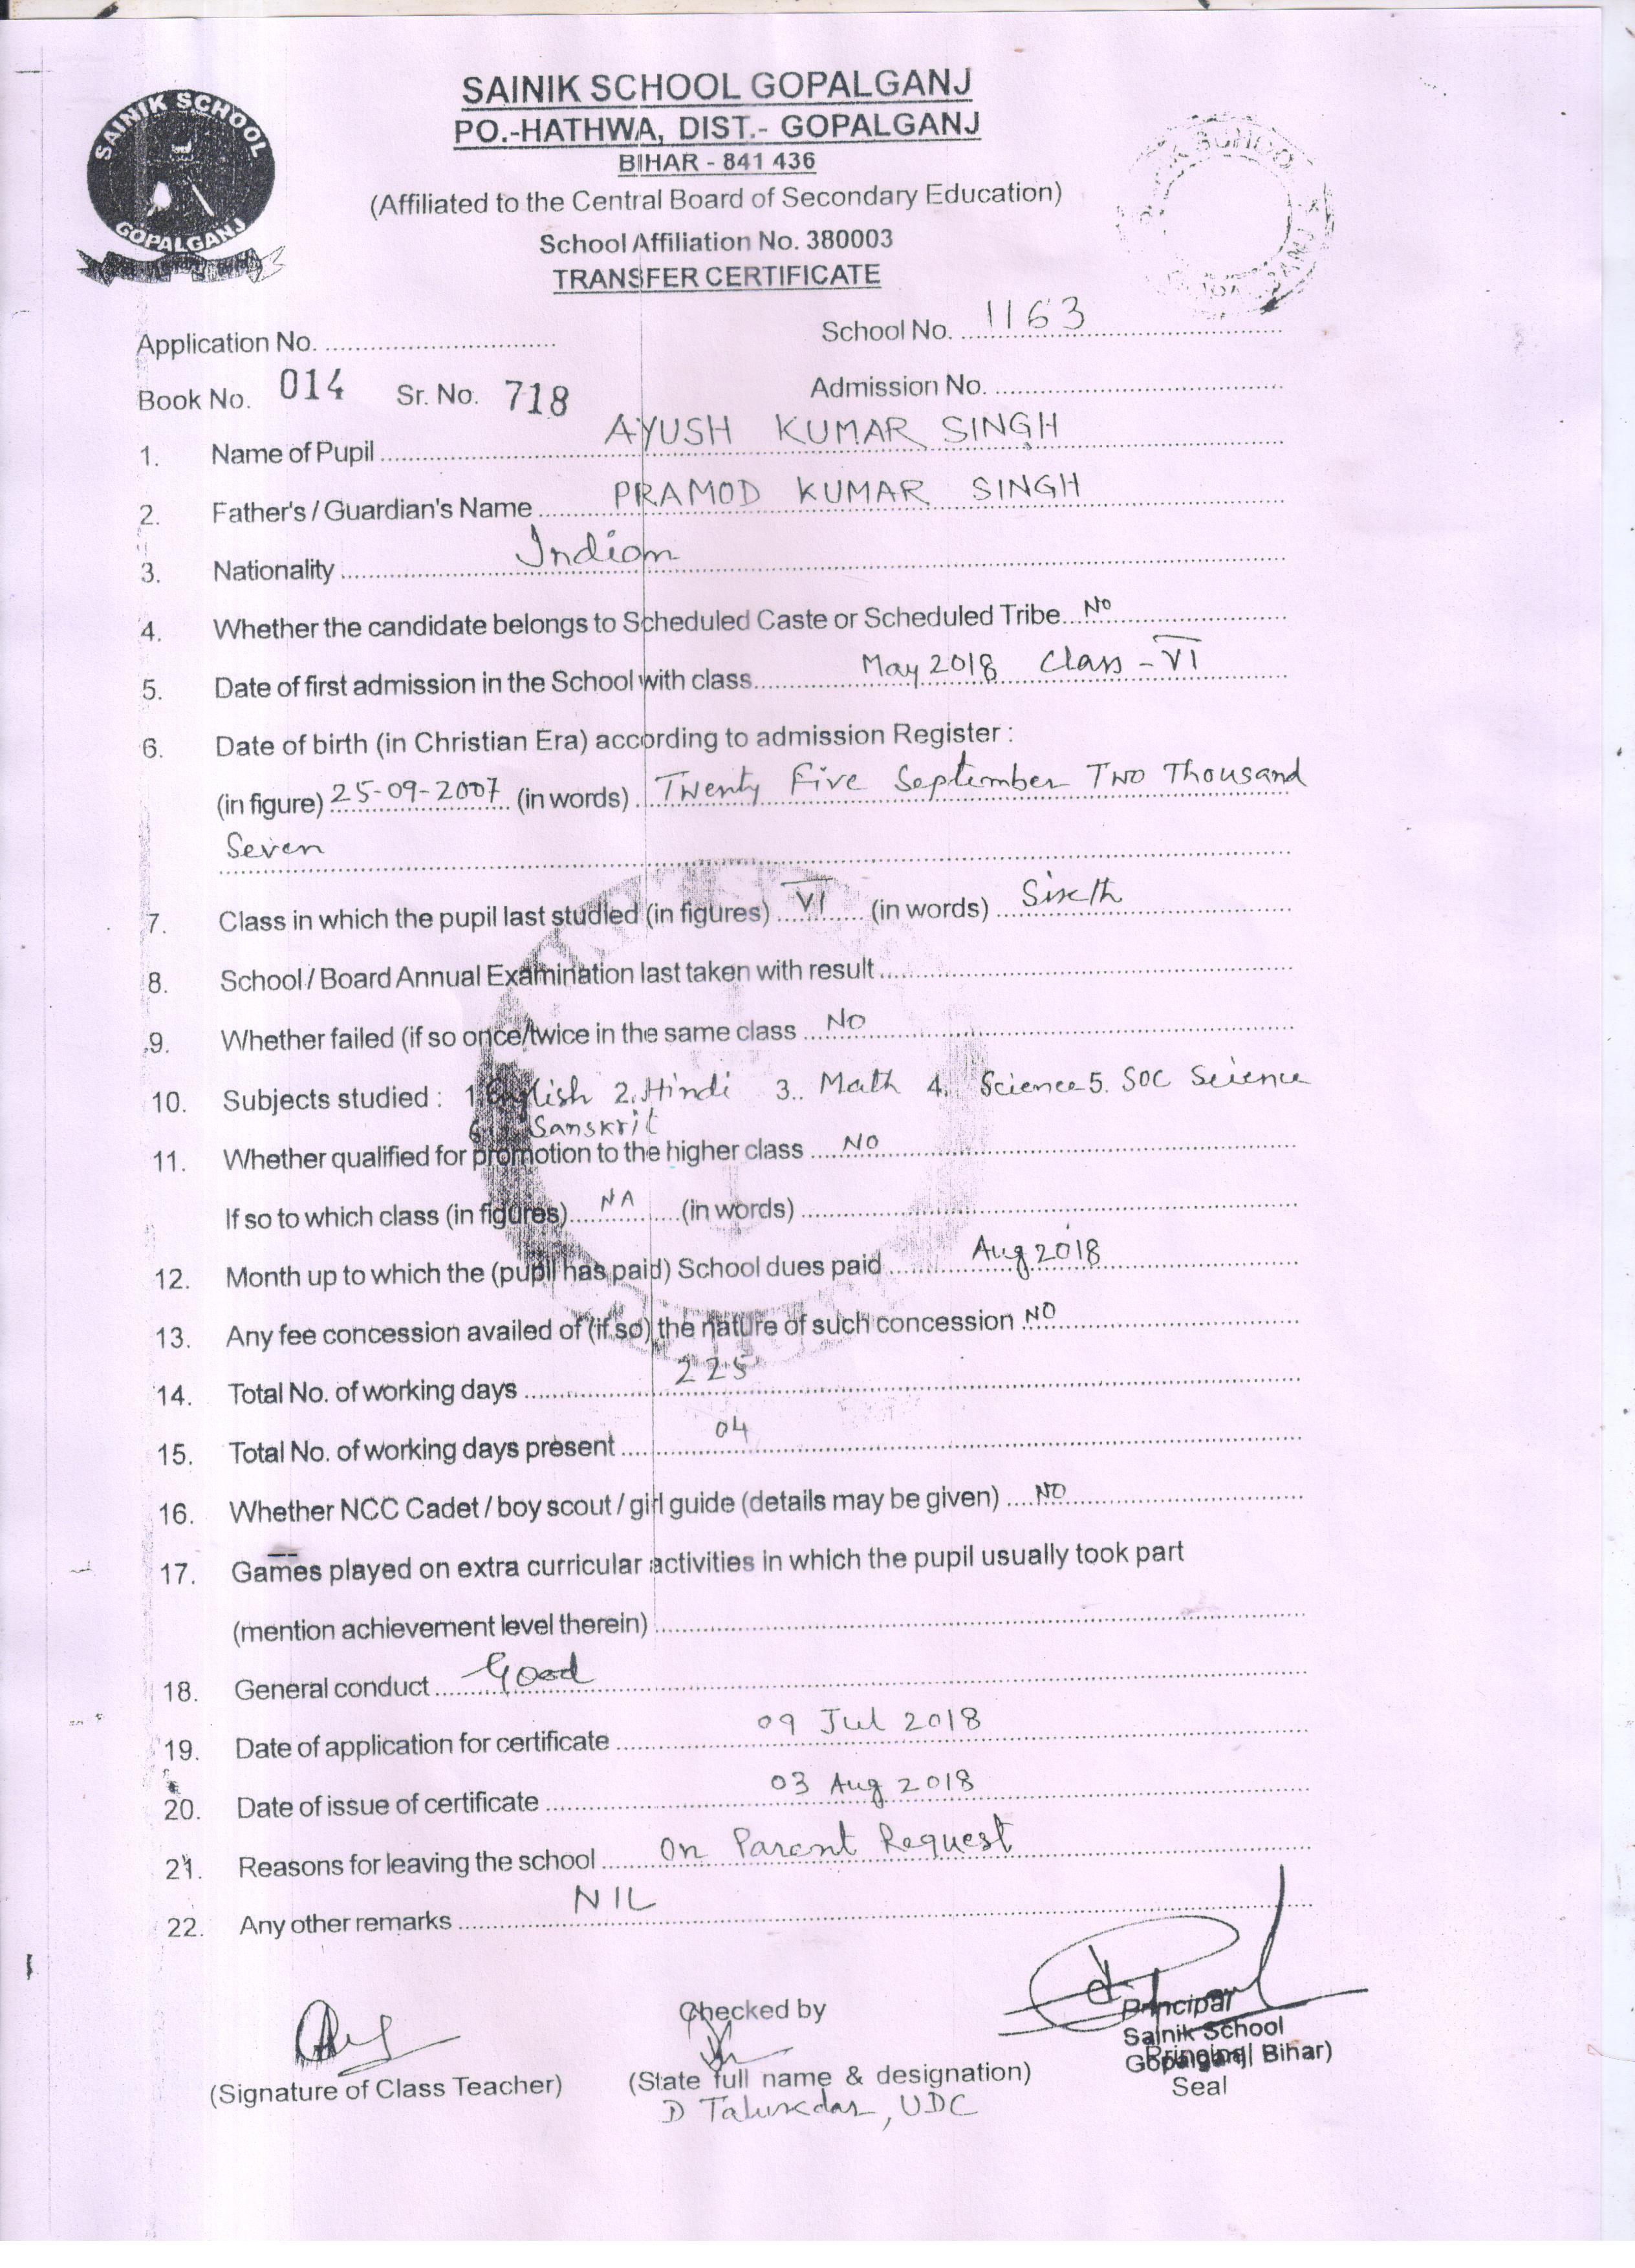 SAINIK SCHOOL GOPALGANJ
PO.-HATHWA, DIST.- GOPALGANJ
BIHAR - 841 436
(Affiliated to the Central Board of Secondary Education)
School Affiliation No. 380003
TRANSFER CERTIFICATE
SAINIK SCHOOL
GOPALGANJ
Application No. ................ School No. 1163
Book No. 014 Sr. No. 718 Admission No. ................
1. Name of Pupil AYUSH KUMAR SINGH
2. Father's / Guardian's Name PRAMOD KUMAR SINGH
3. Nationality Indian
4. Whether the candidate belongs to Scheduled Caste or Scheduled Tribe No
5. Date of first admission in the School with class May 2018 Class - VI
6. Date of birth (in Christian Era) according to admission Register :
(in figure) 25-09-2007 (in words) Twenty Five September Two Thousand
Seven
7. Class in which the pupil last studied (in figures) VI (in words) Sixth
8. School / Board Annual Examination last taken with result
9. Whether failed (if so once/twice in the same class No
10. Subjects studied : 1. English 2. Hindi 3. Math 4. Science 5. SOC Science
6. Sanskrit
11. Whether qualified for promotion to the higher class NO
If so to which class (in figures) NA (in words)
12. Month up to which the (pupil has paid) School dues paid Aug 2018
13. Any fee concession availed of (if so) the nature of such concession NO
14. Total No. of working days 225
15. Total No. of working days present 04
16. Whether NCC Cadet / boy scout / girl guide (details may be given) NO
17. Games played on extra curricular activities in which the pupil usually took part
(mention achievement level therein)
18. General conduct Good
19. Date of application for certificate 09 Jul 2018
20. Date of issue of certificate 03 Aug 2018
21. Reasons for leaving the school On Parent Request
22. Any other remarks NIL
Checked by
Principal
Sainik School
Gopalganj Bihar)
Principal
(Signature of Class Teacher) (State full name & designation) Seal
D Talukdar, UDC